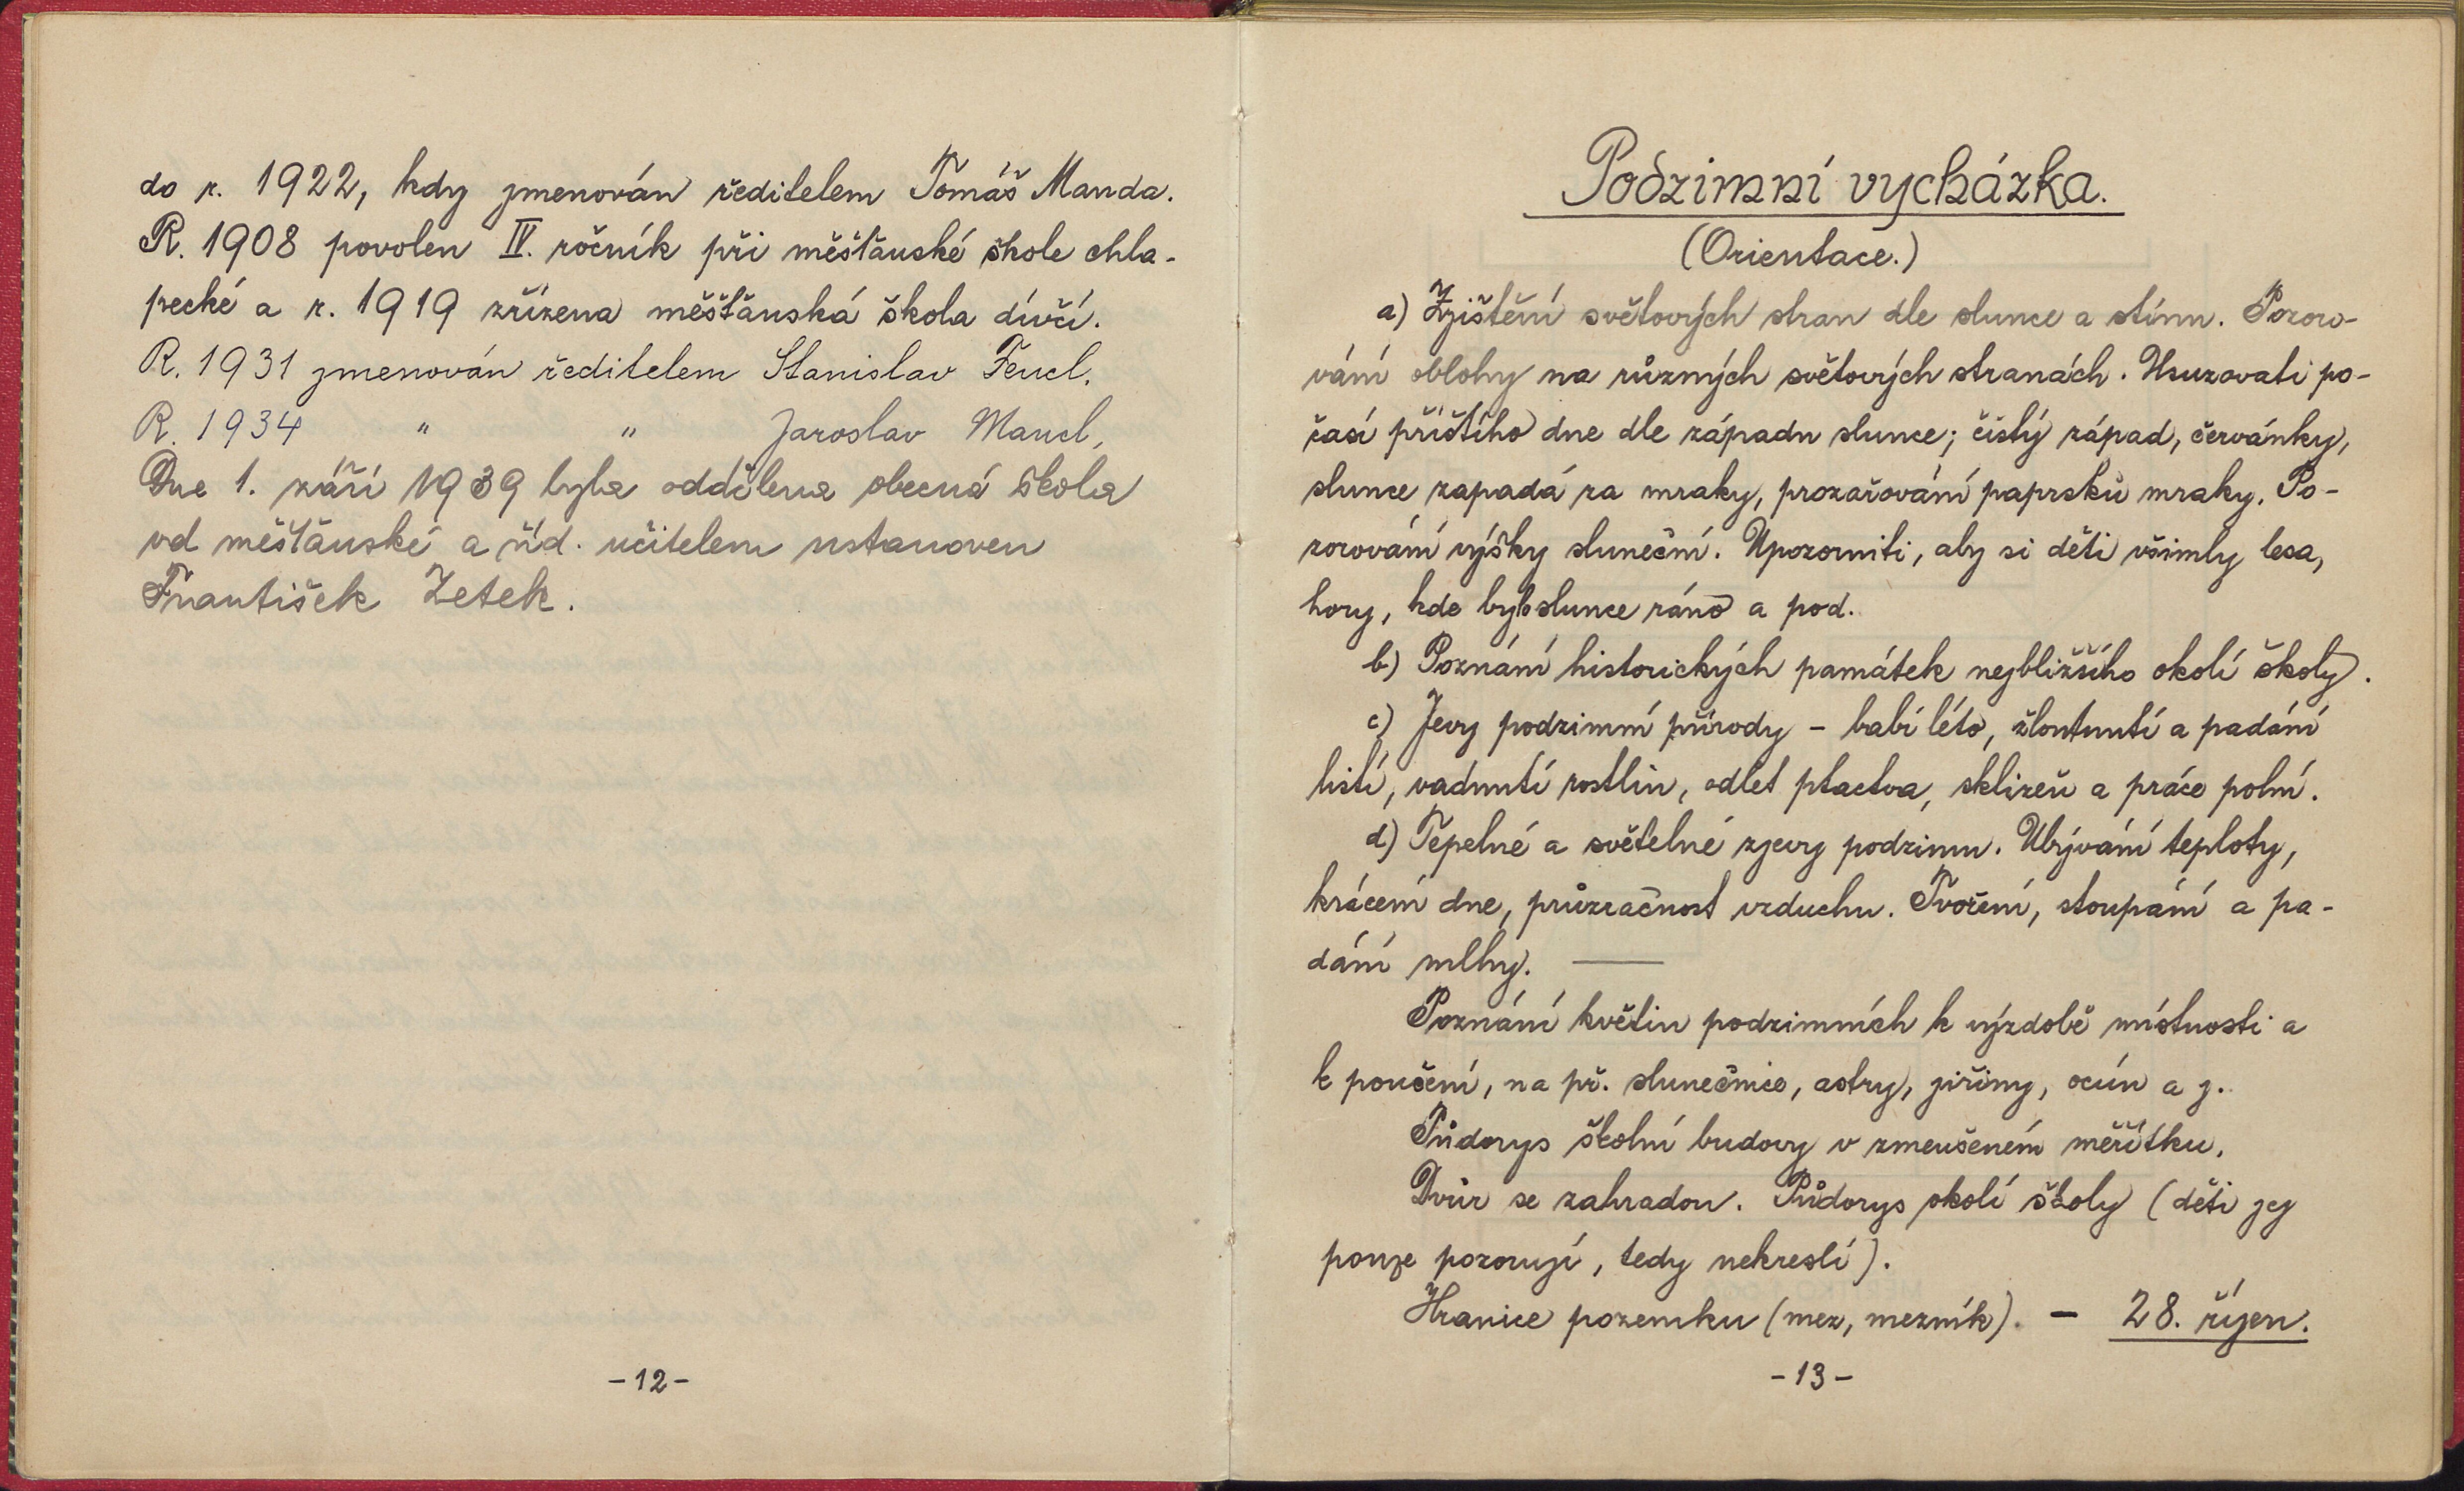 do r. 1922, kdy jmenován ředitelem Tomáš Manda.
R. 1908 povolen IV. ročník při měšťanské škole chla-
pecké a r. 1919 zřízena měšťanská škola dívčí.
R. 1931 jmenován ředitelem Stanislav Fencl.
R. 1934 " " Jaroslav Mancl,
Dne 1. září 1939 byla oddělena obecná škola
od měšťanské a říd. učitelem ustanoven
František Zetek.
-12-
Podzimní vycházka.
(Orientace.)
a) Zjištění světových stran dle slunce a stínu. Pozoro-
vání oblohy na různých světových stranách. Usuzovati po-
časí příštího dne dle západu slunce; čistý západ, červánky,
slunce zapadá za mraky, prozařování paprsků mraky. Po-
zorování výšky sluneční. Upozorniti, aby si děti všimly lesa,
hory, kde bylo slunce ráno a pod.
b) Poznání historických památek nejbližšího okolí školy.
c) Jevy podzimní přírody – babí léto, žloutnutí a padání
listí, vadnutí rostlin, odlet ptactva, sklizeň a práce polní.
d) Tepelné a světelné zjevy podzimu. Ubývání teploty,
krácení dne, průzračnost vzduchu. Tvoření, stoupání a pa-
dání mlhy. —
Poznání květin podzimních k výzdobě místnosti a
k poučení, na př. slunečnice, astry, jiřiny, ocún a j.
Půdorys školní budovy v zmenšeném měřítku.
Dvůr se zahradou. Půdorys okolí školy (děti jej
pouze pozorují, tedy nekreslí).
Hranice pozemku (mez, mezník). – 28. říjen.
-13-